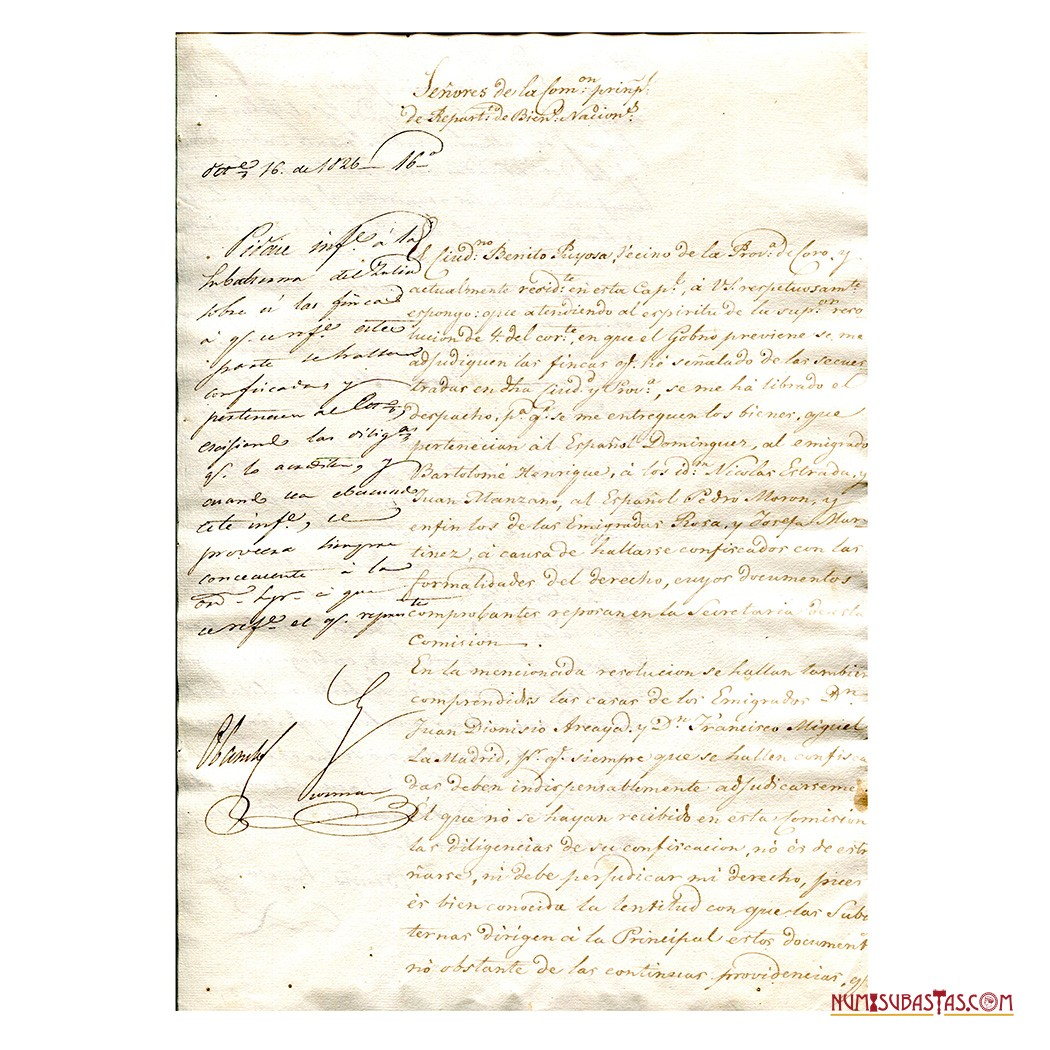 Señores de la Com.on prinp.l
de Repart.n de Bien.s Nacion.s
Oct.e 16. de 1826 16.o
Pidase inf.e á la
Subalterna del Zulia
sobre si las fincas
á q.e se ref.e esta
parte se hallan
confiscadas y
pertenecen al
las dilig.as
q.e lo acrediten, y
cuando sea evacuado
este inf.e, se
proveerá
concerniente á la
orn. Sup.r á que
se ref.e el q.e representa
El Ciud.no Benito Puyosa, vecino de la Prov.a de Coro, y
actualmente resid.te en esta Cap.l, á VS. respetuosam.te
espongo: que atendiendo al espiritu de la sup.or reso
lucion de 4. del cor.te, en que el Gobno previene se me
adjudiquen las fincas q.e hé señalado de las secues
tradas en dha Ciud.d y Prov.a, se me há librado el
despacho, p.a q.e se me entreguen los bienes, que
pertenecian ál Español Dominguez, al emigrado
Bartolomé Henrique, á los id.m Nicolas Estrada, y
Juan Manzano, al Español Pedro Moron, y
enfin los de las Emigradas Rosa, y Josefa Mar-
tinez, á causa de hallarse confiscados con las
formalidades del derecho, cuyos documentos
comprobantes reposan en la Secretaria de esta
Comision.
En la mencionada resolucion se hallan tambien
comprendidas las casas de los Emigrados Dn.
Juan Dionisio Arcaya, y D.n Francisco Miguel
La Madrid, p.r q.e siempre que se hallen confisca
das deben indispensablemente adjudicarseme.
El que no se hayan recibido en esta Comision
las diligencias de su confiscacion, nó és de estra
ñarse, ni debe perjudicar mi derecho, pues
és bien conocida la lentitud con que las Subal
ternas dirigen á la Principal estos document
nó obstante de las continuas providencias, q.e
NUMISUBASTAS.COM